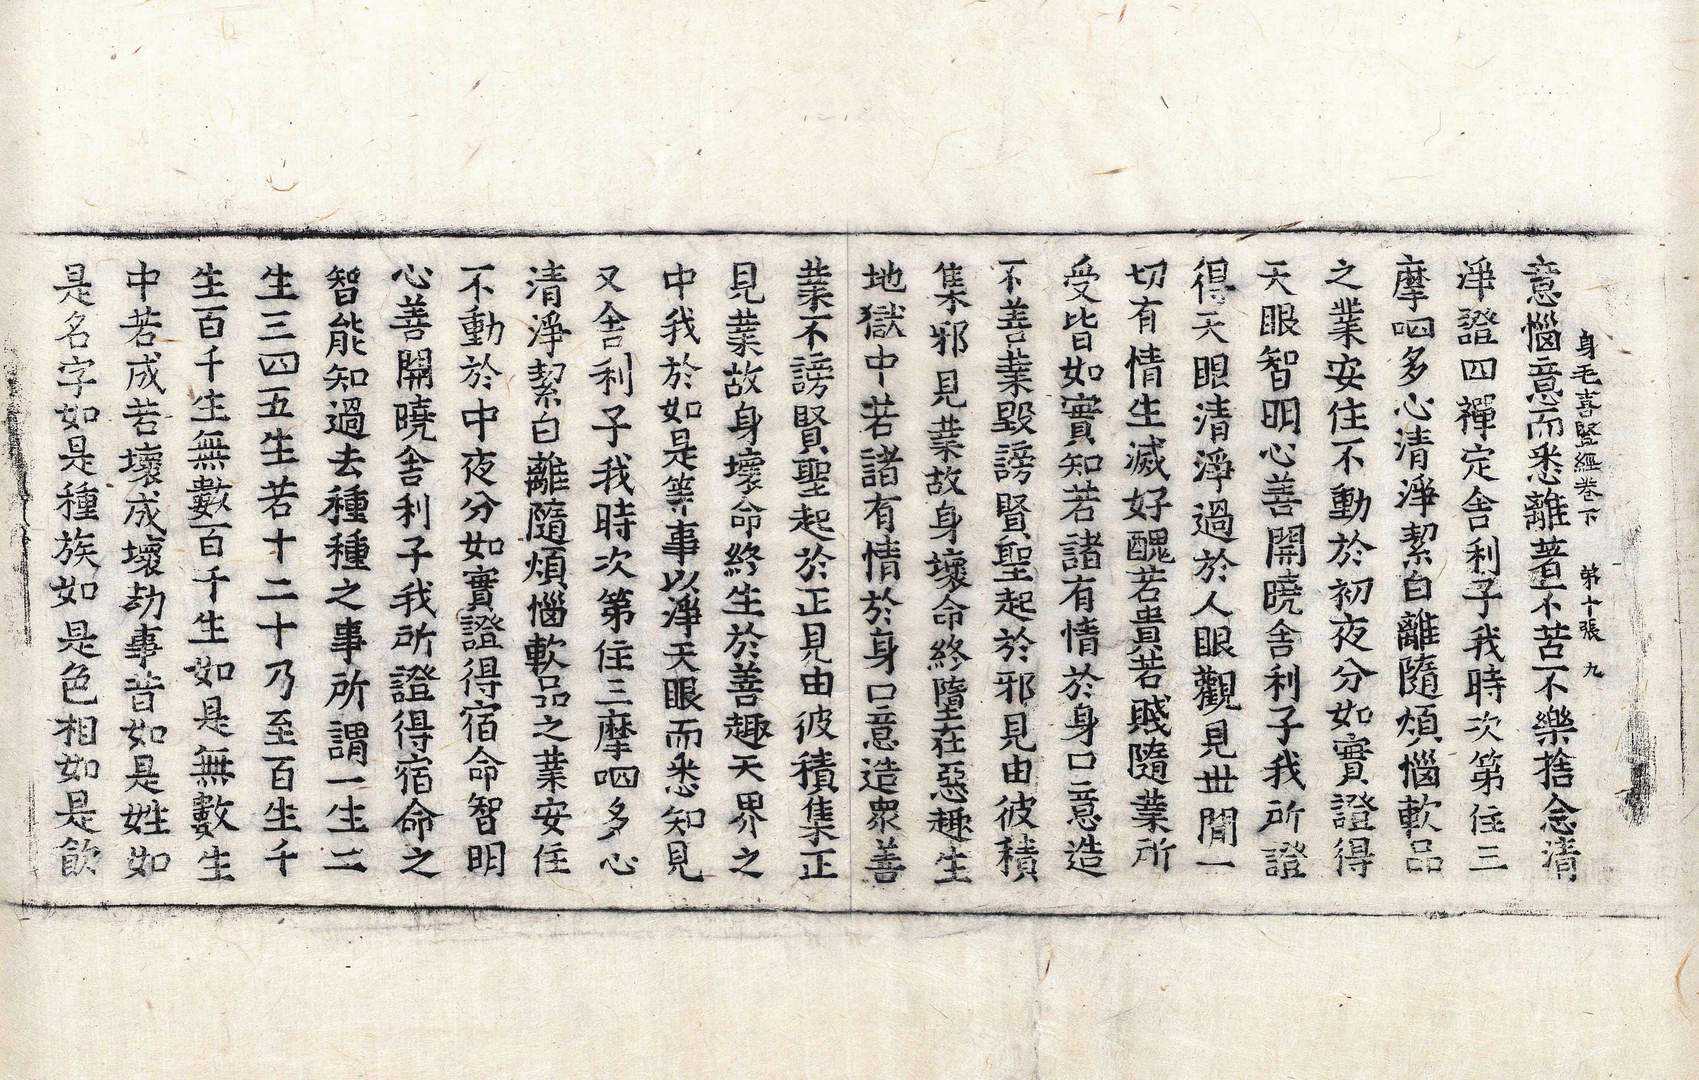 身毛喜豎經卷下 第十張 九
意惱意而悉離著不苦不樂捨念清
淨證四禪定舍利子我時次第住三
摩呬多心清淨潔白離隨煩惱軟品
之業安住不動於初夜分如實證得
天眼智明心善開曉舍利子我所證
得天眼清淨過於人眼觀見世閒一
切有情生滅好醜若貴若賤隨業所
受皆如實知若諸有情於身口意造
不善業毀謗賢聖起於邪見由彼積
集邪見業故身壞命終墮在惡趣生
地獄中若諸有情於身口意造衆善
業不謗賢聖起於正見由彼積集正
見業故身壞命終生於善趣天界之
中我於如是等事以淨天眼而悉知見
又舍利子我時次第住三摩呬多心
清淨潔白離隨煩惱軟品之業安住
不動於中夜分如實證得宿命智明
心善開曉舍利子我所證得宿命之
智能知過去種種之事所謂一生二
生三四五生若十二十乃至百生千
生百千生無數百千生如是無數生
中若成若壞成壞劫事昔如是姓如
是名字如是種族如是色相如是飮